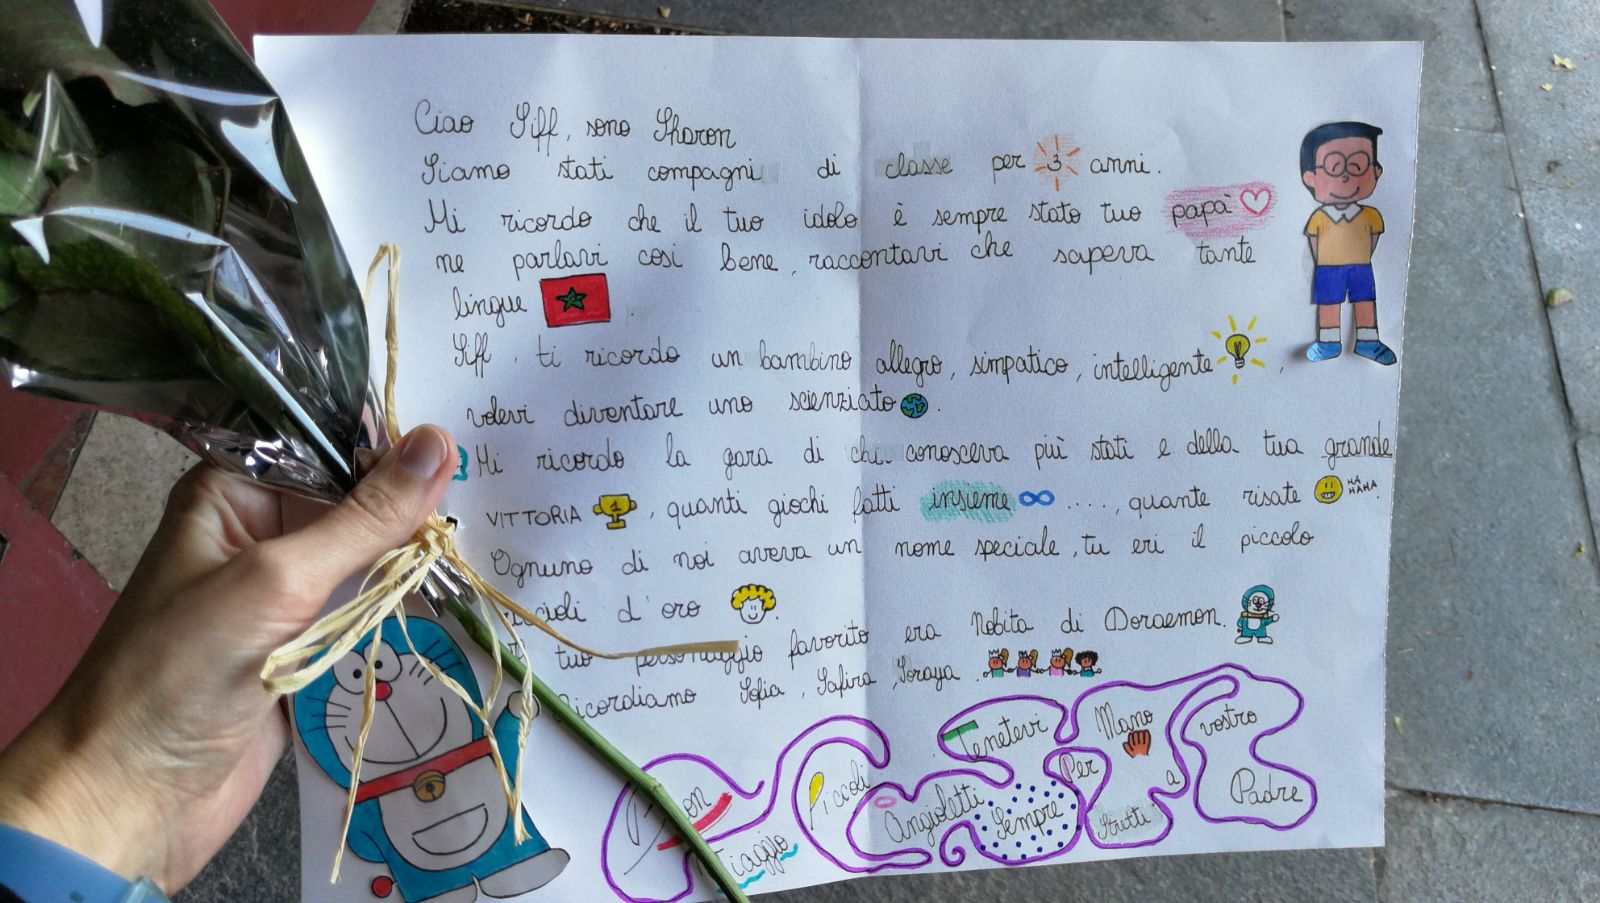 Ciao Siff, sono Sharon
Siamo stati compagni di classe per 3 anni.
Mi ricordo che il tuo idolo è sempre stato tuo papà
ne parlavi così bene, raccontavi che sapeva tante
lingue
Siff, ti ricordo un bambino allegro, simpatico, intelligente,
volevi diventare uno scienziato.
Mi ricordo la gara di chi conosceva più stati e della tua grande
VITTORIA, quanti giochi fatti insieme ....., quante risate HA HAHA.
Ognuno di noi aveva un nome speciale, tu eri il piccolo
d'oro.
tuo personaggio favorito era Nobita di Doraemon.
Ricordiamo Sofia, Safira, Soraya.
Viaggio Piccoli Angioletti
Tenetevi Sempre Per Mano
Stretti a vostro Padre